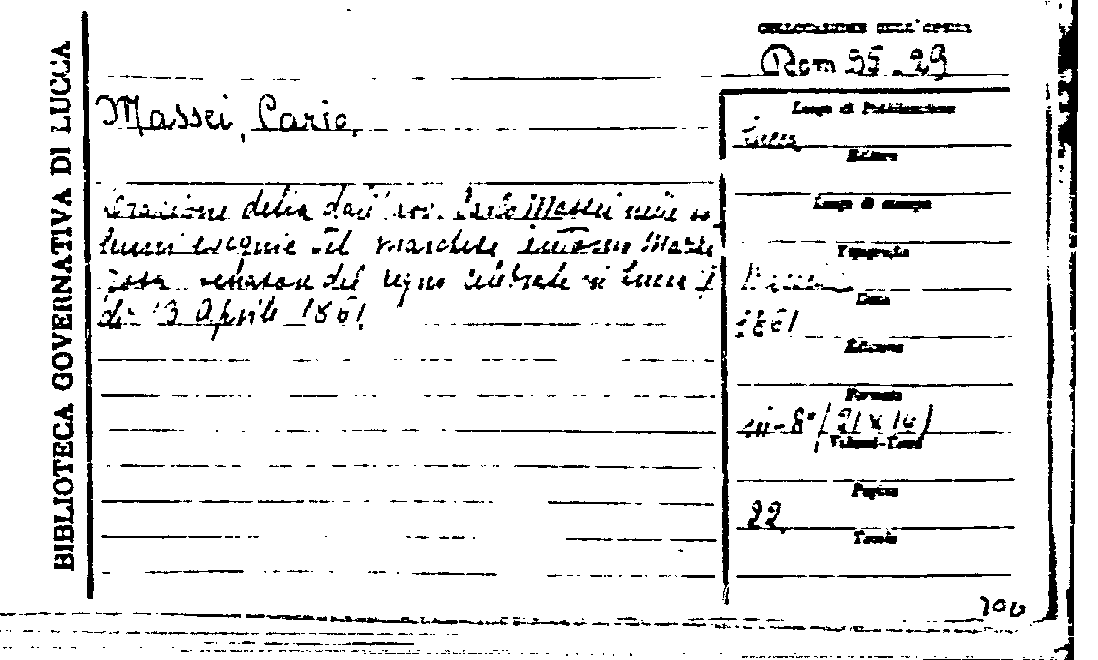 BIBLIOTECA GOVERNATIVA DI LUCCA
COLLOCAZIONE DELL'OPERA
Rom 35.29
Massei, Carlo,
Luogo di Pubblicazione
Lucca
Editore
Orazione detta dall'avv. Carlo Massei nelle so
Luogo di stampa
lenni esequie del marchese Antonio Mazza
Tipografia
rosa senatore del regno celebrate in Lucca il
Data
dì 13 Aprile 1861.
1861
Edizione
Formato
in-8° (21 x 14)
Volumi-Tomi
Pagine
22.
Tavole